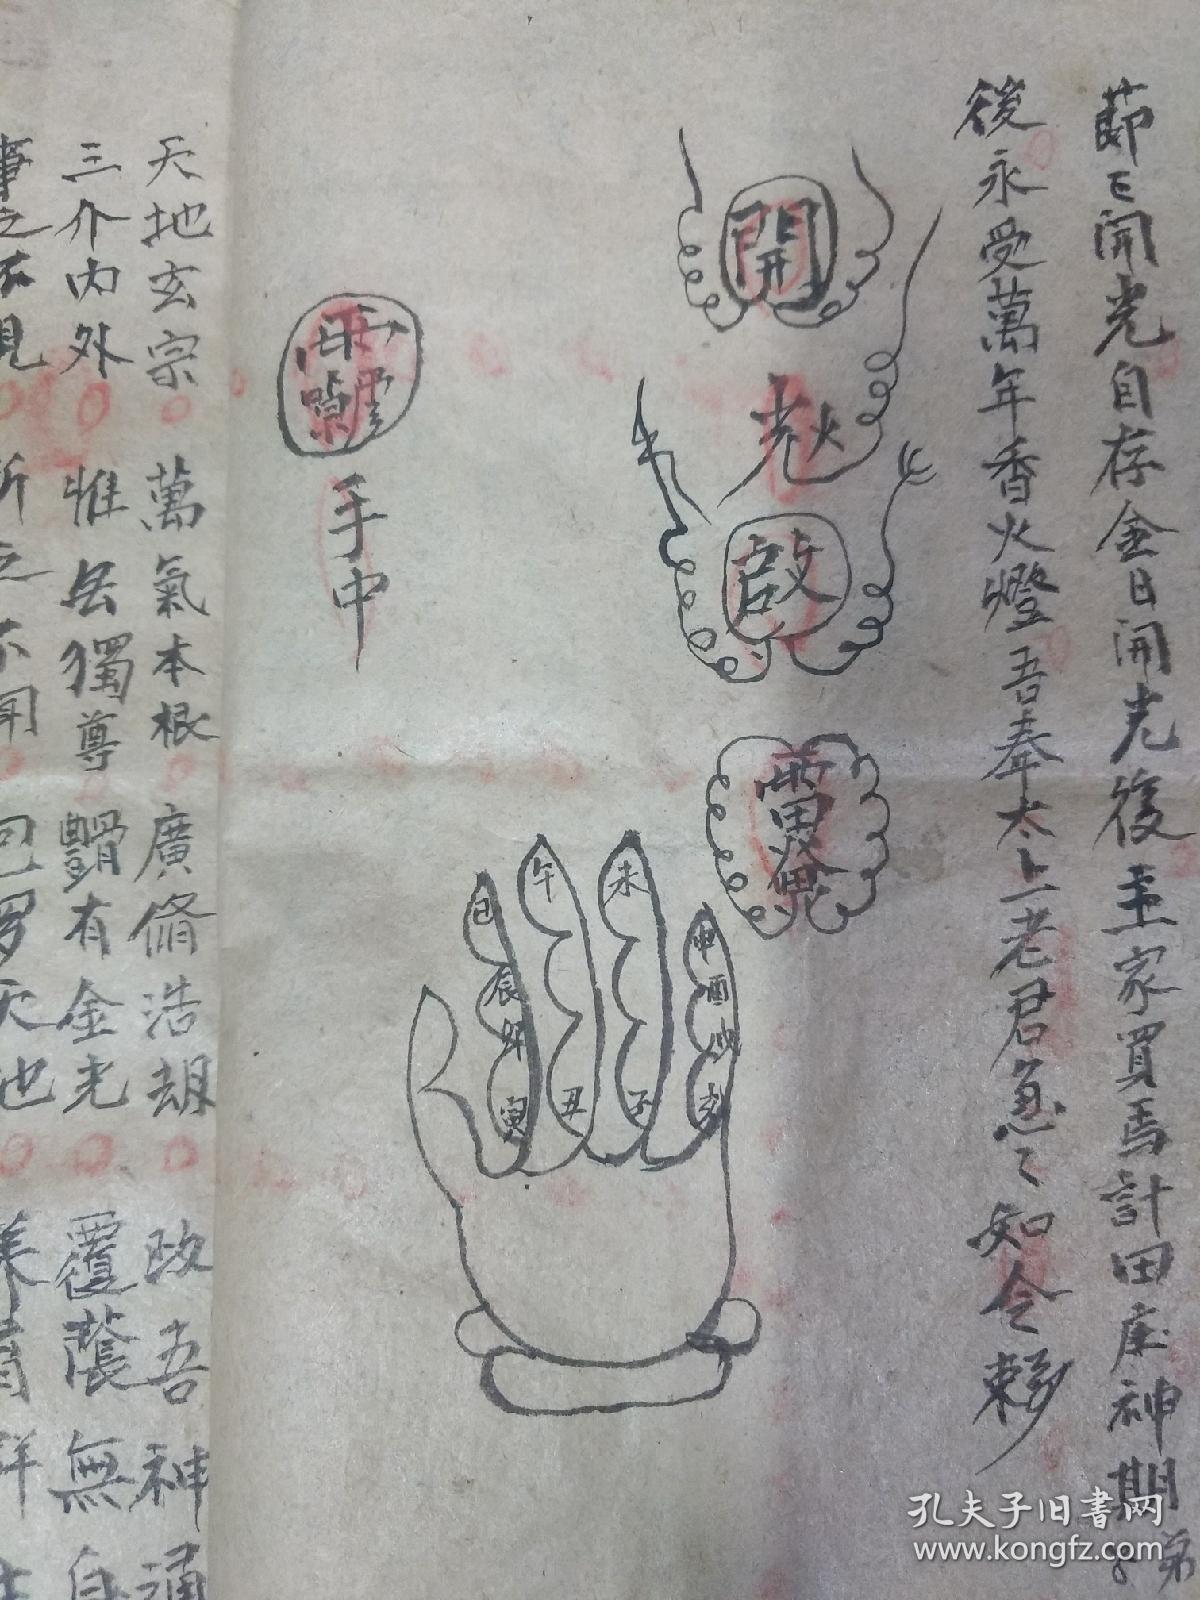 節〻開光自存金日開光後主家買馬計田庄神期
弟
後永受萬年香火燈吾奉太上老君急〻知令敕
開
光火
啟
手中
巳 午 未 申
辰 酉
卯 戌
寅 丑 子 亥
天地玄宗 萬氣本根 廣脩浩劫 政吾神通
三介内外 惟 獨尊 有金光 覆 無白
之不見 之不聞 包罗天地 养育群
孔夫子旧书网
www.kongfz.com